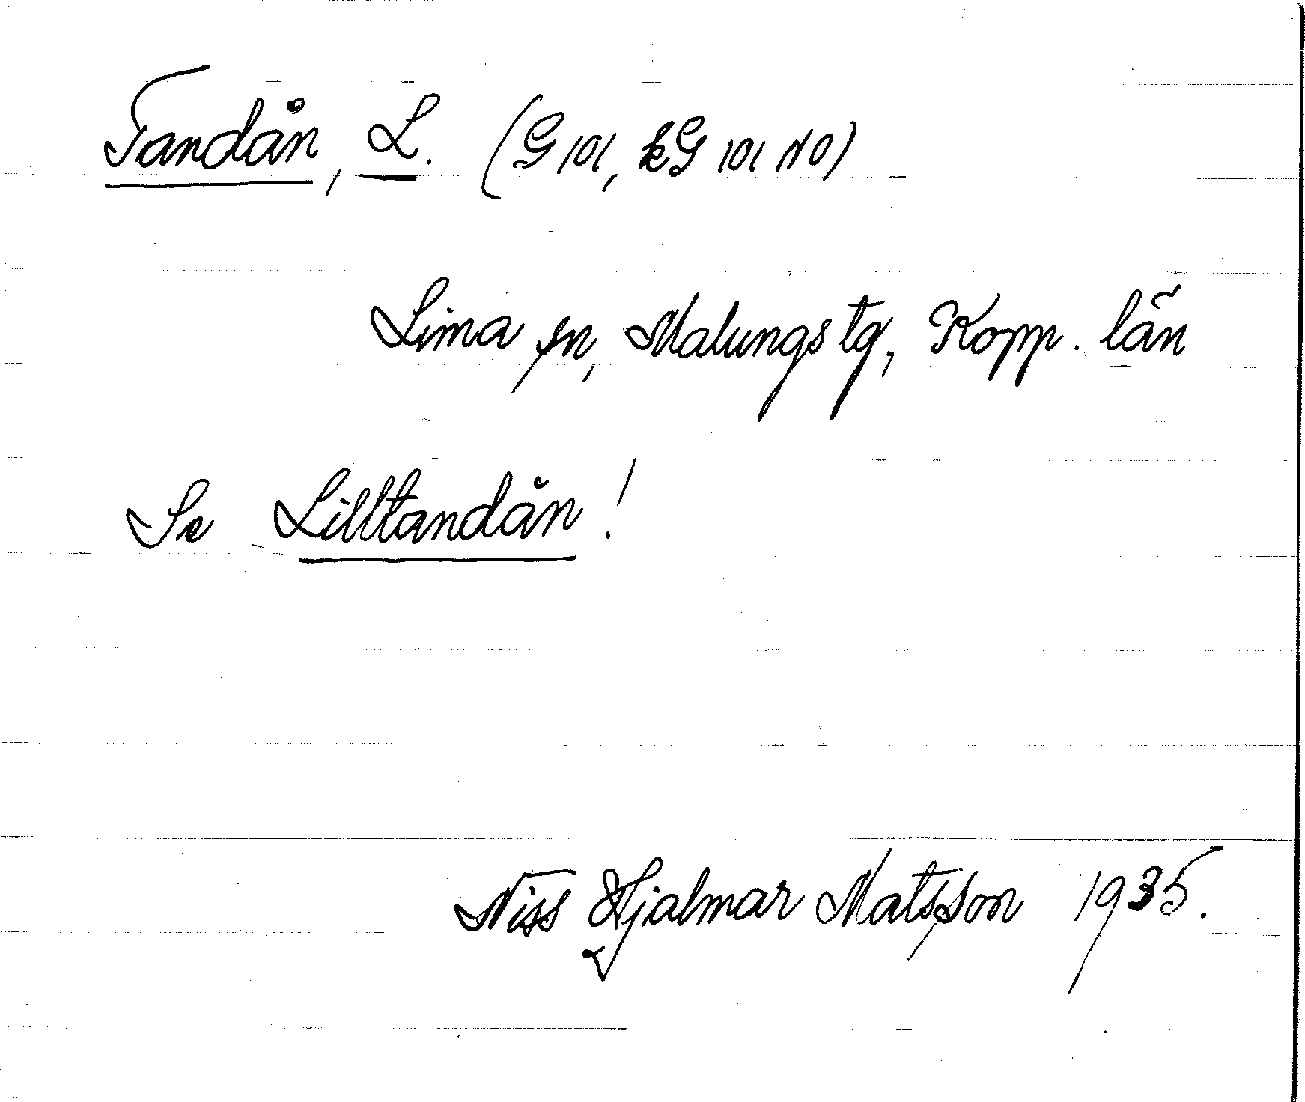 Tandån, L. (G 101, kG 101 NO)
Lima sn, Malungs tg, Kopp. län
Se Lilltandån!
Niss Hjalmar Matsson 1935.